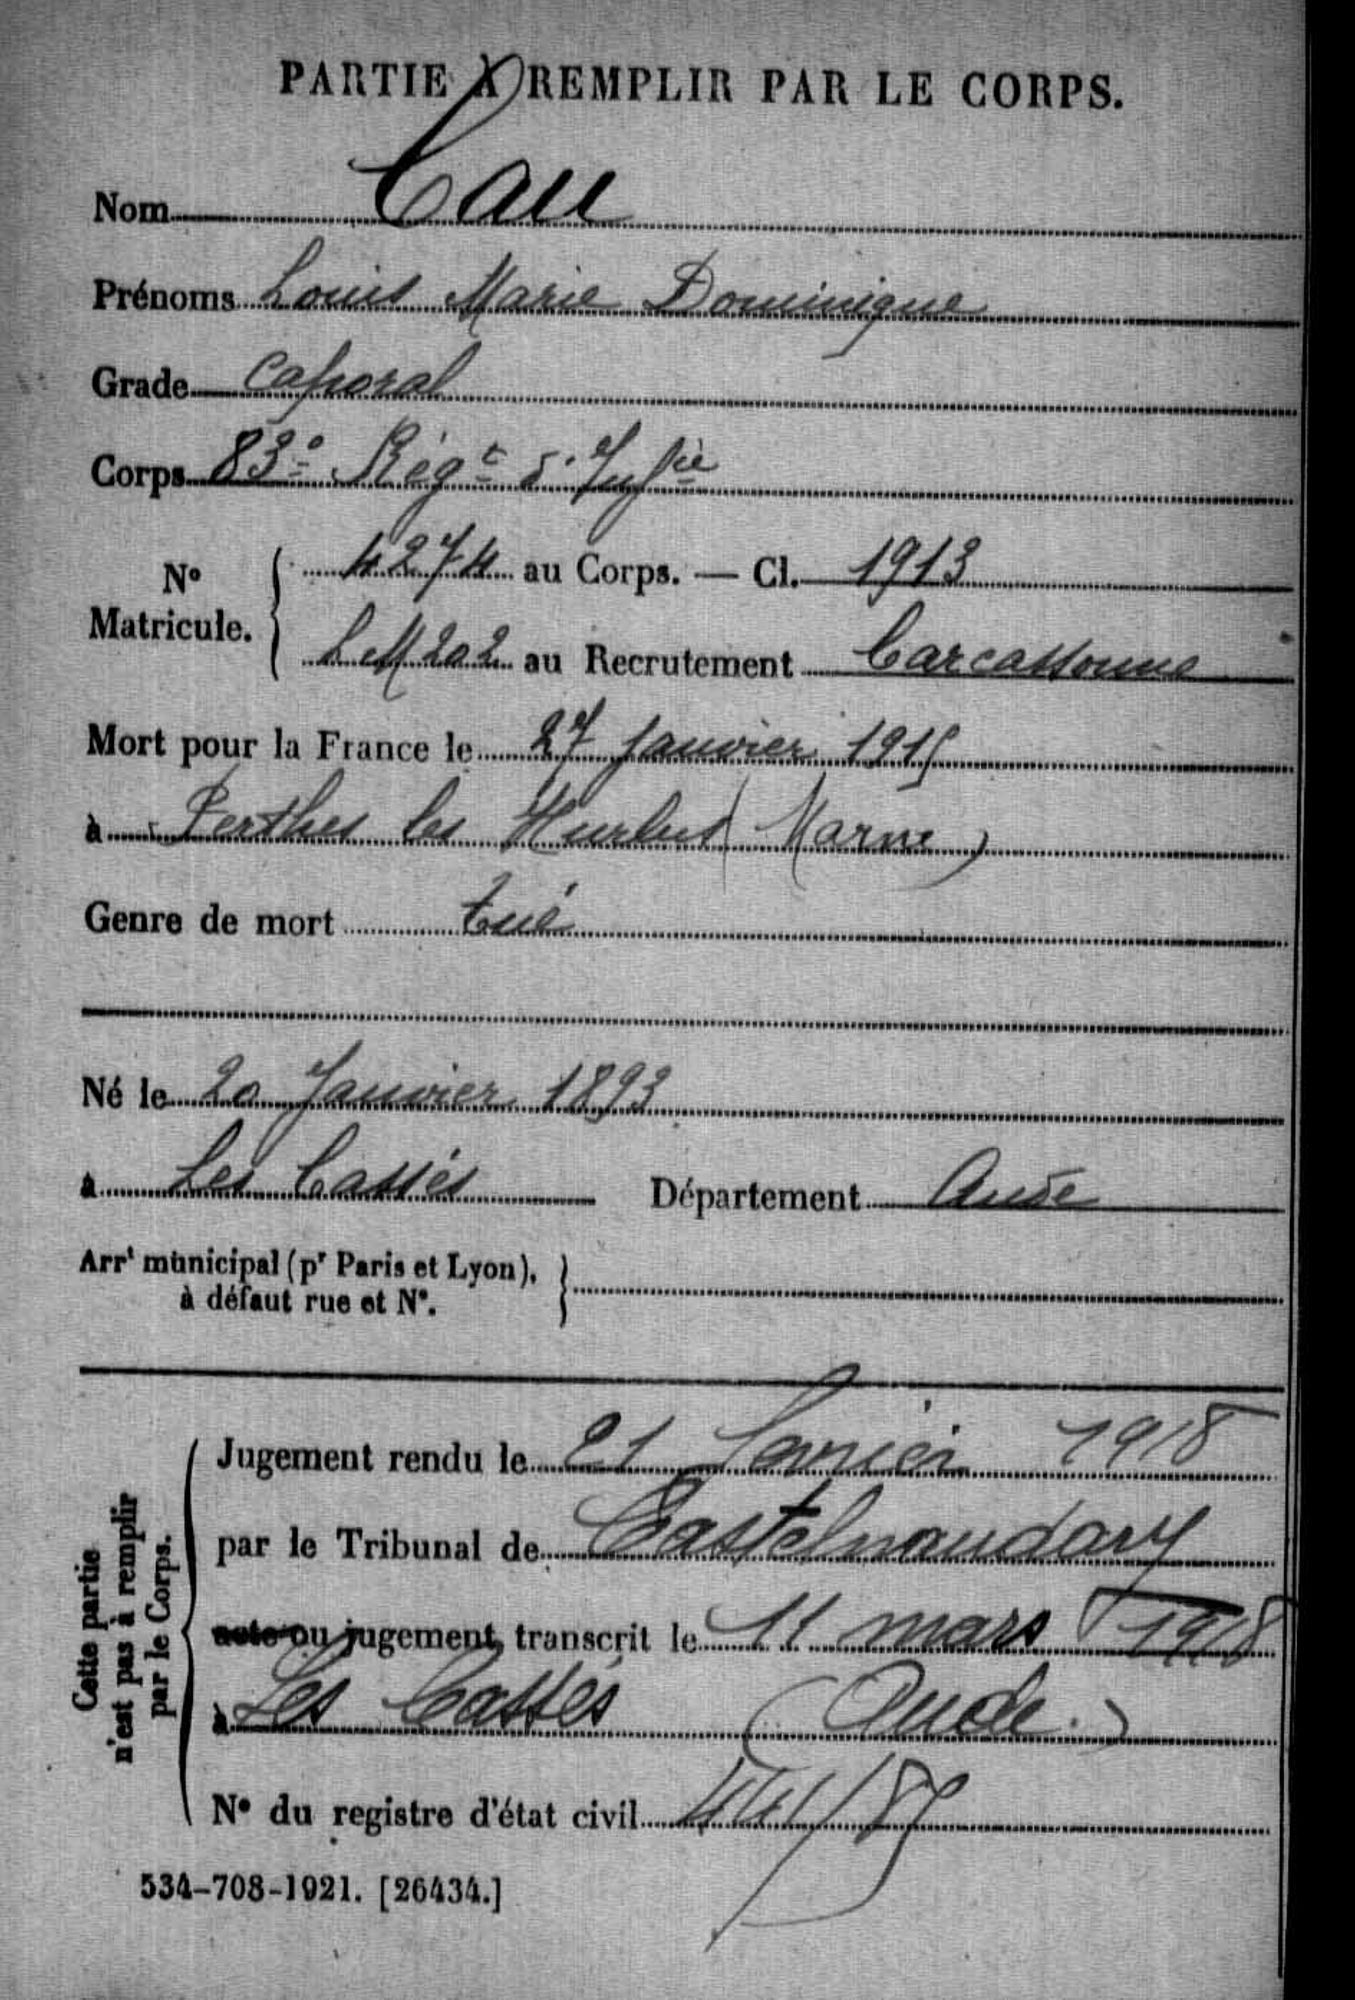 PARTIE À REMPLIR PAR LE CORPS.
Nom Cau
Prénoms Louis Marie Dominique
Grade Caporal
Corps 83e Régt d'Infie
No Matricule. { 4274 au Corps. — Cl. 1913
LM 202 au Recrutement Carcassonne
Mort pour la France le 27 Janvier 1915
à Perthes les Hurlus (Marne)
Genre de mort tué
Né le 20 Janvier 1893
à Les Cassés Département Aude
Arrt municipal (pr Paris et Lyon), à défaut rue et No. }
Cette partie n'est pas à remplir par le Corps.
Jugement rendu le 21 Février 1918
par le Tribunal de Castelnaudary
acte ou jugement, transcrit le 11 mars 1918
à Les Cassés (Aude.)
No du registre d'état civil
534-708-1921. [26434.]